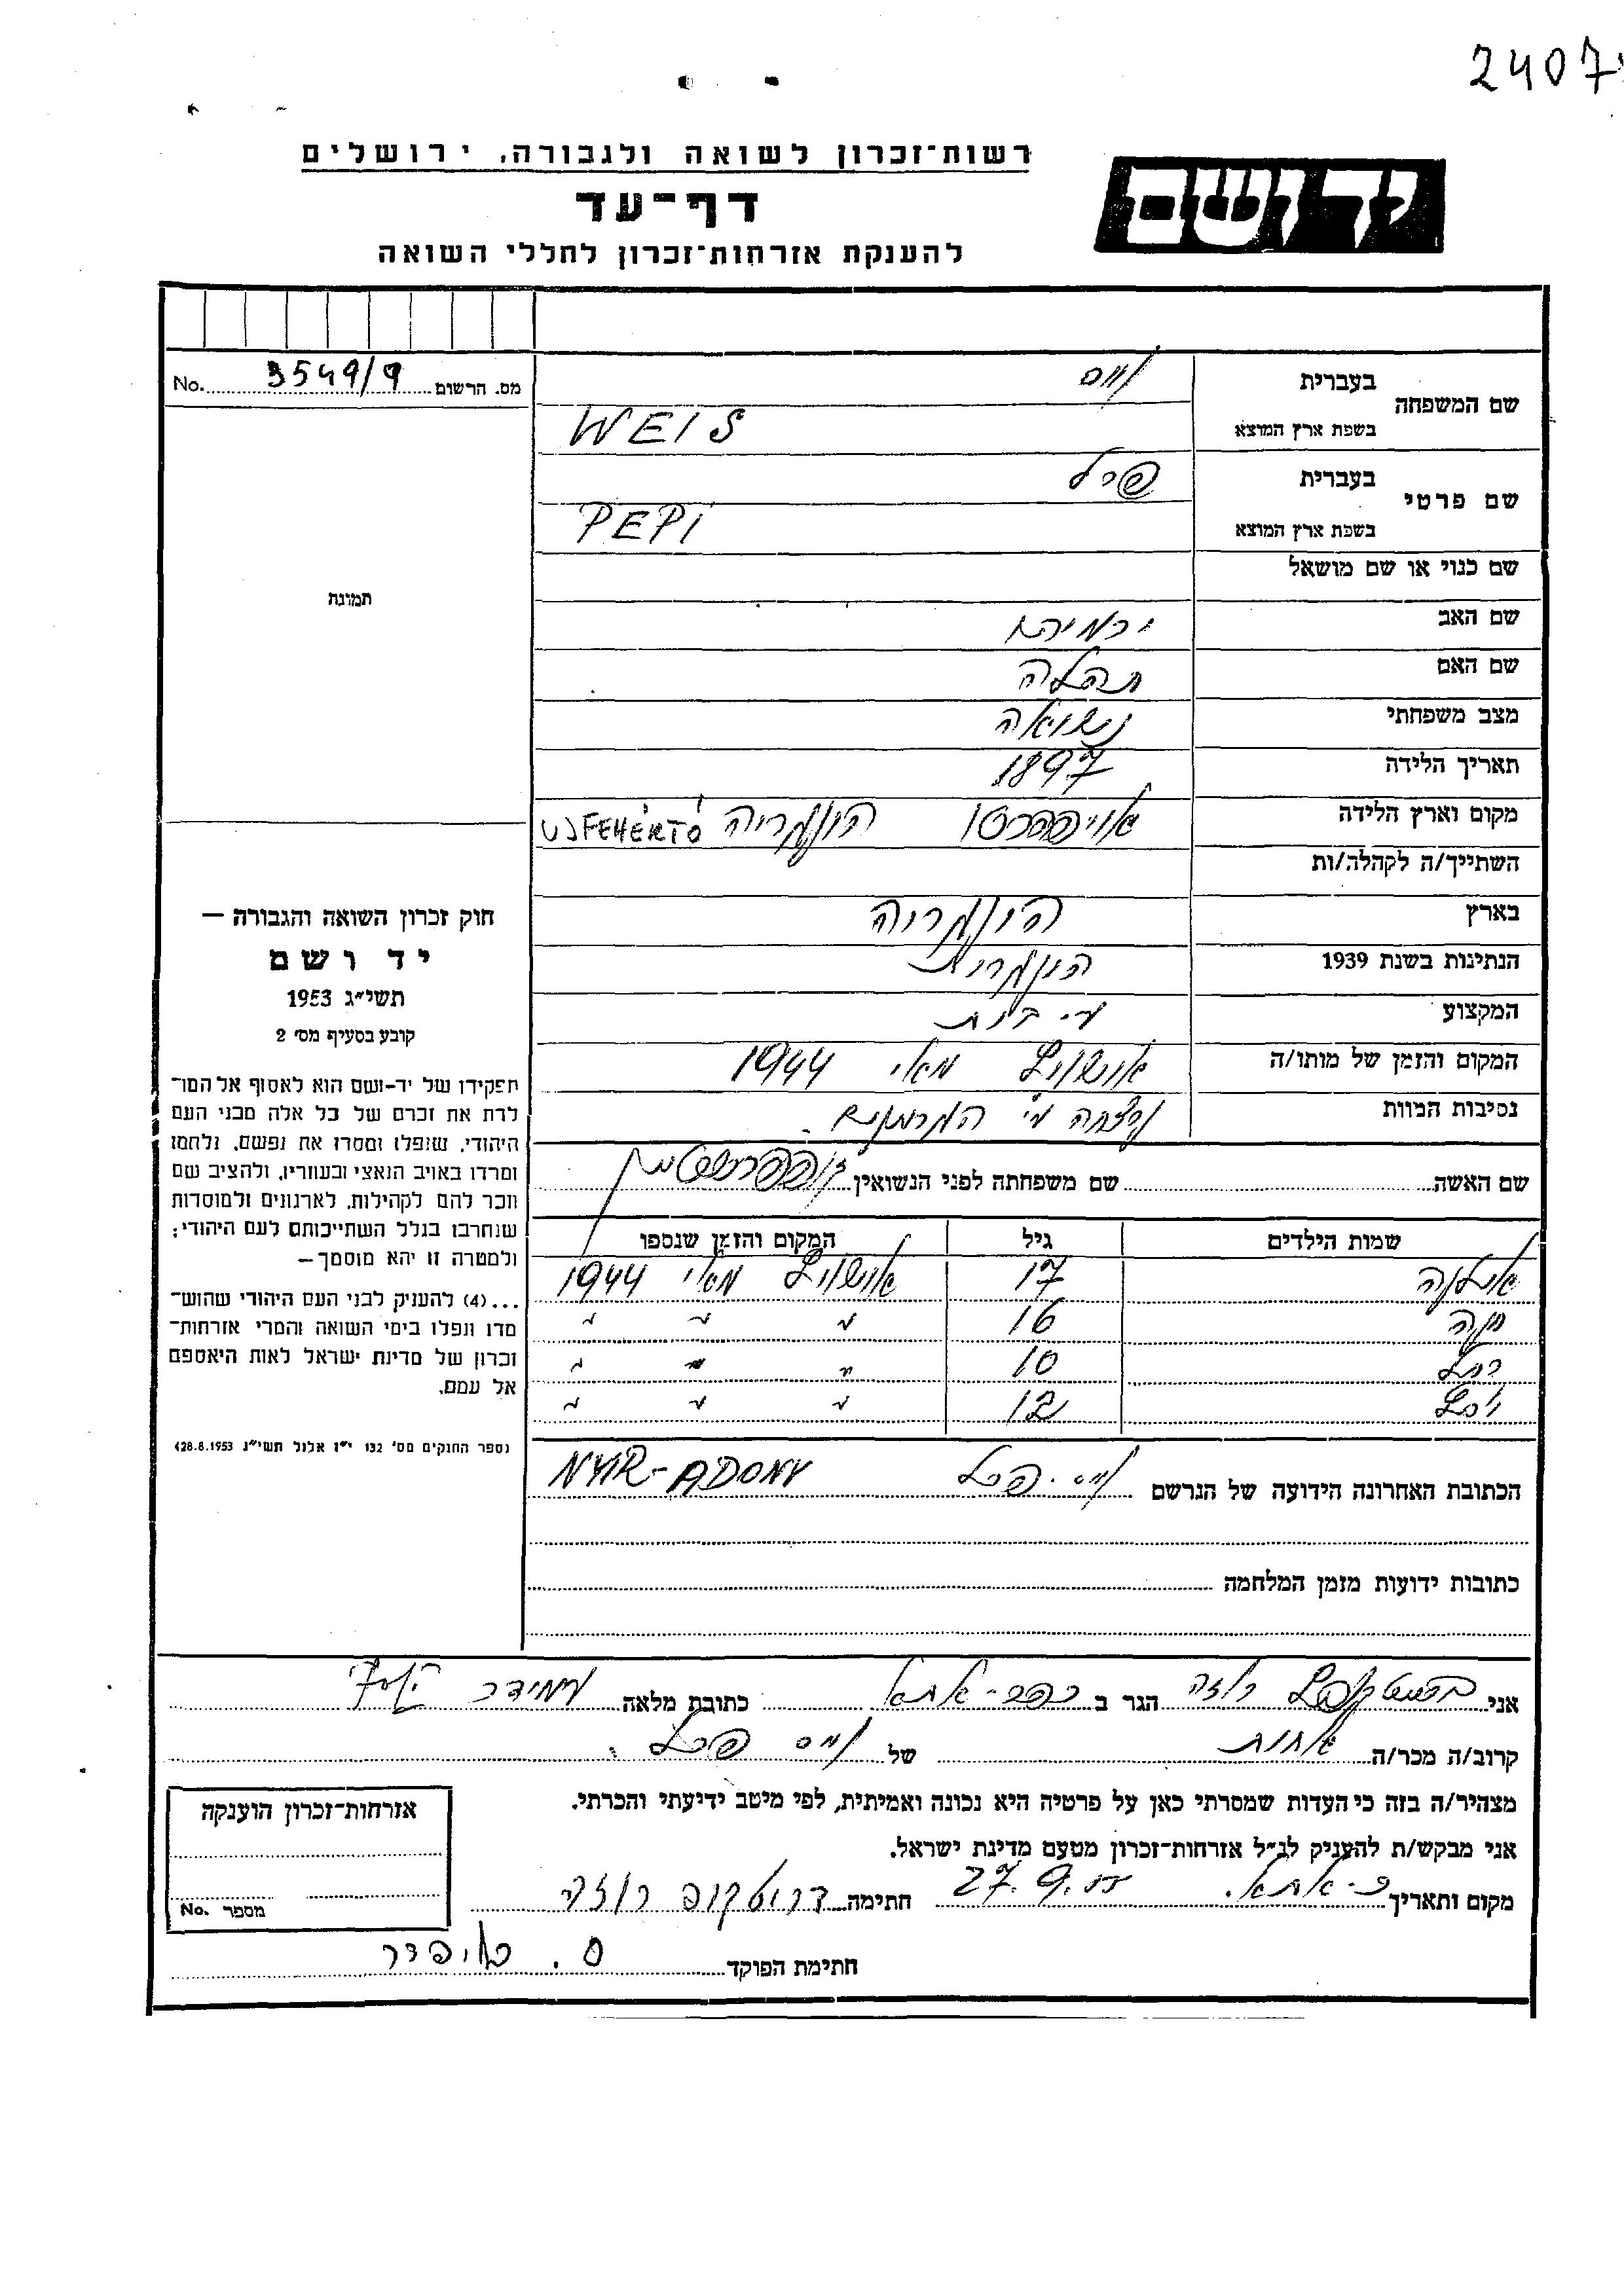 2407
רשות־זכרון לשואה ולגבורה, ירושלים
יד ושם
דף־עד
להענקת אזרחות־זכרון לחללי השואה
No. 3549/9 מס. הרשום
תמונה
שם המשפחה
בעברית וייס
בשפת ארץ המוצא WEIS
שם פרטי
בעברית פרל
בשפת ארץ המוצא PEPI
שם כנוי או שם מושאל
שם האב ירמיהו
שם האם תהלה
מצב משפחתי נשואה
תאריך הלידה 1897
מקום וארץ הלידה אויפהרטו הונגריה UJFEHÉRTÓ
השתייך/ה לקהלה/ות
בארץ הונגריה
הנתינות בשנת 1939 הונגרית
המקצוע
המקום והזמן של מותו/ה אושוויץ מאי 1944
נסיבות המוות נרצחה ע"י הגרמנים.
שם האשה שם משפחתה לפני הנשואין
שמות הילדים גיל המקום והזמן שנספו
17 אושוויץ מאי 1944
חנה 16 " " "
רחל 10 " " "
12 " " "
הכתובת האחרונה הידועה של הנרשם וייס פרל NYIR-ADONY
כתובות ידועות מזמן המלחמה
חוק זכרון השואה והגבורה —
יד ושם
תשי״ג 1953
קובע בסעיף מס׳ 2
תפקידו של יד-ושם הוא לאסוף אל המו־
לדת את זכרם של כל אלה מבני העם
היהודי, שנפלו ומסרו את נפשם, נלחמו
ומרדו באויב הנאצי ובעוזריו, ולהציב שם
וזכר להם לקהילות, לארגונים ולמוסדות
שנחרבו בגלל השתייכותם לעם היהודי;
ולמטרה זו יהא מוסמך —
...(4) להענין לבני העם היהודי שהוש־
מדו ונפלו בימי השואה והמרי אזרחות־
זכרון של מדינת ישראל לאות היאספם
אל עמם.
(ספר החוקים מס׳ 132 י״ז אלול תשי״ג 28.8.1953)
אני רוזה הגר ב כפר-אתא כתובת מלאה
קרוב/ה מכר/ה אחות של וייס פרל.
מצהיר/ה בזה כי העדות שמסרתי כאן על פרטיה היא נכונה ואמיתית, לפי מיטב ידיעתי והכרתי.
אני מבקש/ת להעניק לנ״ל אזרחות־זכרון מטעם מדינת ישראל.
מקום ותאריך כ-אתא. 27.9.55 חתימה רוזה
חתימת הפוקד
אזרחות־זכרון הוענקה
No. מספר